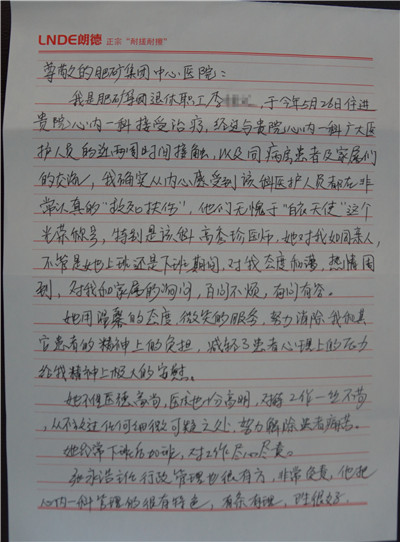 LNDE朗德 正宗“耐搓耐擦”
尊敬的肥矿集团中心医院：
我是肥矿集团退休职工李 ，于今年5月26日住进
贵院心内一科接受治疗，经过与贵院心内一科广大医
护人员的近两周时间接触，以及同病房患者及家属们
的交流，我确实从内心感受到该科医护人员都在非
常认真的“救死扶伤”，他们无愧于“白衣天使”这个
光荣称号，特别是该科高 珍医师，她对我如同亲人，
不管是她上班还是下班期间，对我态度和蔼，热情周
到，对我和家属的询问，百问不烦，有问有答。
她用温馨的态度，微笑的服务，努力消除我和其
它患者的精神上的负担，减轻了患者心理上的压力
给我精神上极大的安慰。
她不但医德高尚，医术也十分高明，对待工作一丝不苟，
从不放过任何细微可疑之处，努力解除患者病痛。
她经常下班后加班，对工作尽心尽责。
张永浩主任行政管理也很有方，非常负责，他把
心内一科管理的很有特色，有条有理，